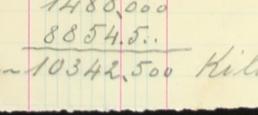 1480,000
8854.5..
~10342.500 Kil